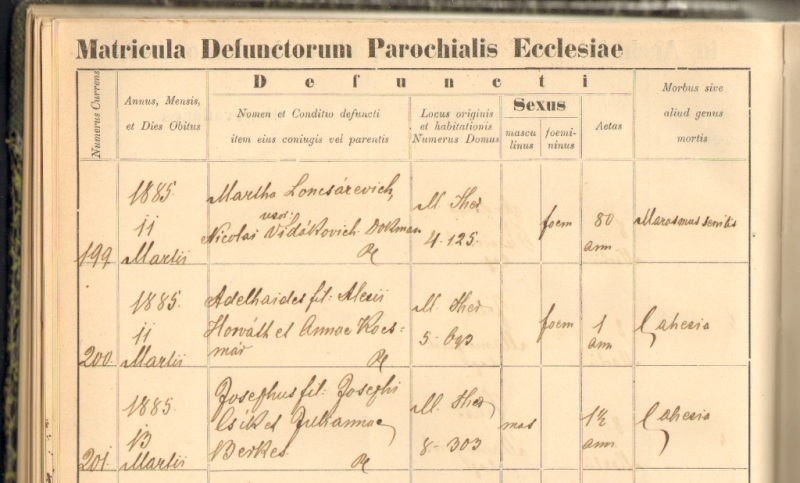 Matricula Defunctorum Parochialis Ecclesiae
Numerus Currens
Annus, Mensis,
et Dies Obitus
Defuncti
Nomen et Conditio defuncti
item eius coniugis vel parentis
Locus originis
et habitationis
Numerus Domus
Sexus
mascu
linus
foemi-
ninus
Aetas
Morbus sive
aliud genus
mortis
199
1885.
11
Martii
Martha Loncsárevich,
Nicolai Vidákovich
M. Ther
4. 125.
foem
80
ann
Marasmus senilis
200
1885.
11
Martii
Adelhaides fil: Alexii
Horváth et Annae Kocs-
már
M. Ther
5-
foem
1
ann
Cahexia
201.
1885
13
Martii
Josephus fil: Josephi
Csik et Juliannae
Berkes
M. Ther
8-303
mas
1½
ann
Cahexia